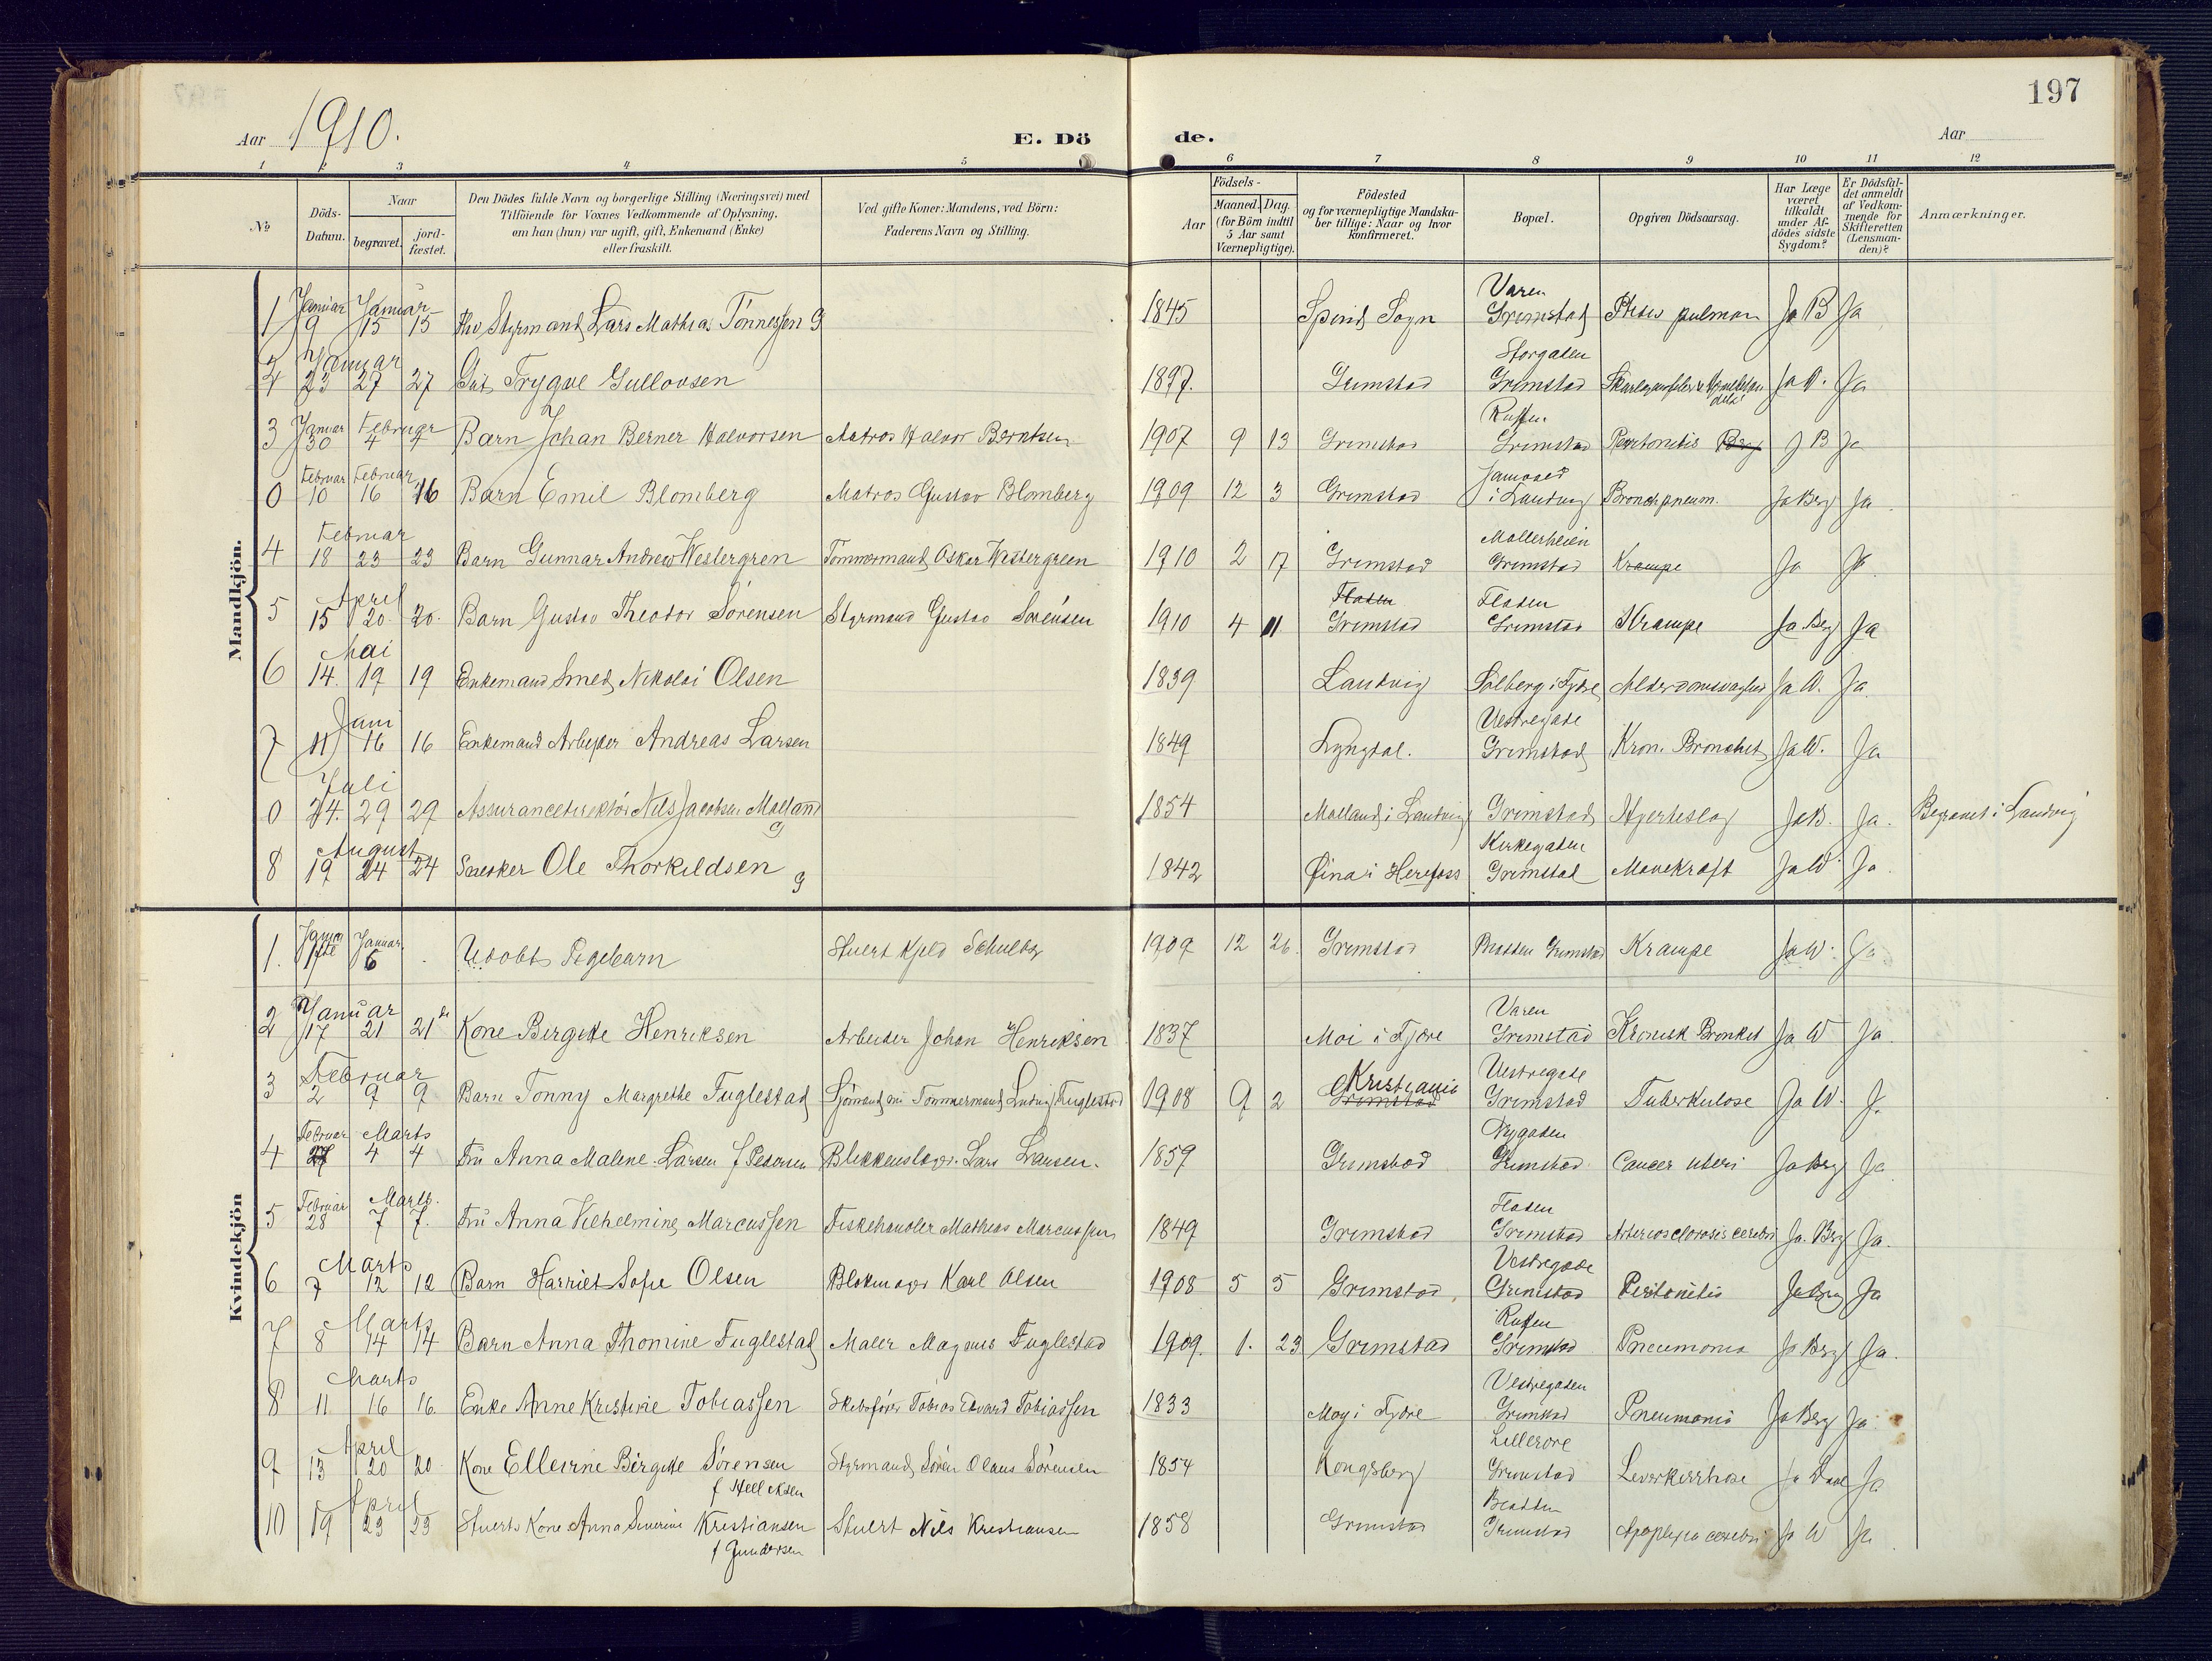 197
Aar 1910.
E. Dö
de.
Aar
1 2 3 4 5 6 7 8 9 10 11 12
№
Döds-Datum.
Naar
begravet.
jord-fæstet.
Den Dödes fulde Navn og borgerlige Stilling (Næringsvei) med
Tilföiende for Voxnes Vedkommende af Oplysning,
om han (hun) var ugift, gift, Enkemand (Enke)
eller fraskilt.
Ved gifte Koner: Mandens, ved Börn:
Faderens Navn og Stilling.
Aar
Födsels-
Maaned. Dag.
(for Börn indtil
5 Aar samt
Værnepligtige).
Födested
og for værnepligtige Mandska-
ber tillige: Naar og hvor
konfirmeret.
Bopæl.
Opgiven Dödsaarsag.
Har Læge
været
tilkaldt
under Af-
dödes sidste
Sygdom?
Er Dödsfal-
det anmeldt
af Vedkom-
mende for
Skifteretten
(Lensman-
den)?
Anmærkninger.
Mandkjön.
Januar Januar Varen
1 9 15 15 Styrmand Lars Mathias Tönnessen G 1845 Spind Sogn Grimstad pulmon Ja B Ja
Januar Storgaden
2 23 27 27 Gut Trygve Gullovsen 1897. Grimstad Grimstad Ja W. Ja
Januar Februar
3 30 4 4 Barn Johan Berner Halvorsen Matros Halvor Berntsen 1907 9 13 Grimstad Grimstad Peritonitis J B Ja
Februar Februar
0 10 16 16 Barn Emil Blomberg Matros Gustav Blomberg 1909 12 3 Grimstad i Landvig Bronchpneum. Ja Berg Ja
Februar Mollerheien
4 18 23 23 Barn Gunnar Andrew Westergren Tömmermand Oskar Westergreen 1910 2 17 Grimstad Grimstad Krampe Ja Ja
April Fladen Fladen
5 15 20 20. Barn Gustav Theodor Sörensen Styrmand Gustav Sörensen 1910 4 11 Grimstad Grimstad Krampe Ja Berg Ja
Mai
6 14. 19 19 Enkemand Smed Nikolai Olsen 1839 Landvig Solberg i Fjære Alderdomssvaghed Ja W. Ja
Juni Vestregade
7 11 16 16 Enkemand Arbeider Andreas Larsen 1849 Lyngdal. Grimstad Kron. Bronchit Ja W. Ja
Juli
0 24. 29 29 Assurancedirektör Nils Jacobsen Molland G 1854 Molland i Landvig Grimstad Hjerteslag Ja B. Ja. Begravet i Landvig
August Kirkegaden
8 19 24 24 Snekker Ole Thorkildsen G 1842 i Herefoss Grimstad Mavekræft Ja W Ja
Kvindekjön
Januar
1. 1 6 Udöbt Pigebarn Stuert Kjeld Schultz 1909 12 26. Grimstad Bratten Grimstad Krampe Ja W. Ja
Januar Varen
2 17 21 21de Kone Birgitte Henriksen Arbeider Johan Henriksen 1837 Moi i Fjære Grimstad Kronisk Bronkit Ja W Ja
Februar Kristiania Vestregade
3 2 9 9 Barn Tonny Margrethe Fuglestad Sjömand Tömmermand Ludvig Fuglestad 1908 9 2 Grimstad Grimstad Tuberkulose Ja W. J.
Februar Marts Nygaden
4 27 4 4 Fru Anna Malene Larsen f Pedersen Blikkenslager Lars Larsen. 1859 Grimstad Grimstad Cancer uteri Ja Berg Ja
Februar Marts. Fladen
5 28 7 7. Fru Anna Vilhelmine Marcussen Fiskehandler Mathias Marcussen 1849 Grimstad Grimstad Arteriosclerosis cerebri Ja. Berg Ja.
Marts Vestregade
6 7 12 12 Barn Harriet Sofie Olsen Blokmager Karl Olsen 1908 5 5 Grimstad Grimstad Peritonitis Ja Berg Ja
Marts
7 8 14 14 Barn Anna Thomine Fuglestad Maler Magnus Fuglestad 1909. 1. 23 Grimstad Grimstad Pneumonia Ja Berg Ja.
Marts Vestregaden
8 11 16 16. Enke Anne Kristine Tobiassen Skibsförer Tobias Edvard Tobiassen 1833 Moy i Fjære Grimstad Pneumonia Ja Berg Ja
April Lilleröre
9 13 20 20 Kone Elleine Birgitte Sörensen Styrmand Sören Olaus Sörensen 1854 Kongsberg Grimstad Leverkirrhose Ja Daae Ja
April Bratten
10 19 23 23 Stuerts Kone Anna Severine Kristiansen Stuert Nils Kristiansen 1858 Grimstad Grimstad Apoplexia cerebri Ja W Ja
f Gundersen